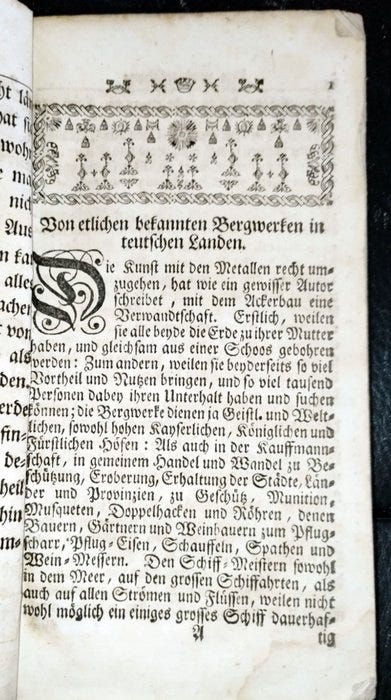 1
Von etlichen bekannten Bergwerken in
teutschen Landen.
Die Kunst mit den Metallen recht um-
zugehen, hat wie ein gewisser Autor
schreibet, mit dem Ackerbau eine
Verwandtschaft. Erstlich, weilen
sie alle beyde die Erde zu ihrer Mutter
haben, und gleichsam aus einer Schoos gebohren
werden: Zum andern, weilen sie beyderseits so viel
Vortheil und Nutzen bringen, und so viel tausend
Personen dabey ihren Unterhalt haben und suchen
können; die Bergwerke dienen ja Geistl. und Welt-
lichen, sowohl hohen Kayserlichen, Königlichen und
Fürstlichen Höfen: Als auch in der Kauffmann-
schaft, in gemeinem Handel und Wandel zu Be-
schützung, Eroberung, Erhaltung der Städte, Län-
der und Provinzien, zu Geschütz, Munition,
Musqueten, Doppelhacken und Röhren, denen
Bauern, Gärtnern und Weinbauern zum Pflug-
scharr, Pflug-Eisen, Schauffeln, Spathen und
Wein-Messern. Den Schiff-Meistern sowohl
in dem Meer, auf den grossen Schiffahrten, als
auch auf allen Strömen und Flüssen, weilen nicht
wohl möglich ein einiges grosses Schiff dauerhaf-
A
tig